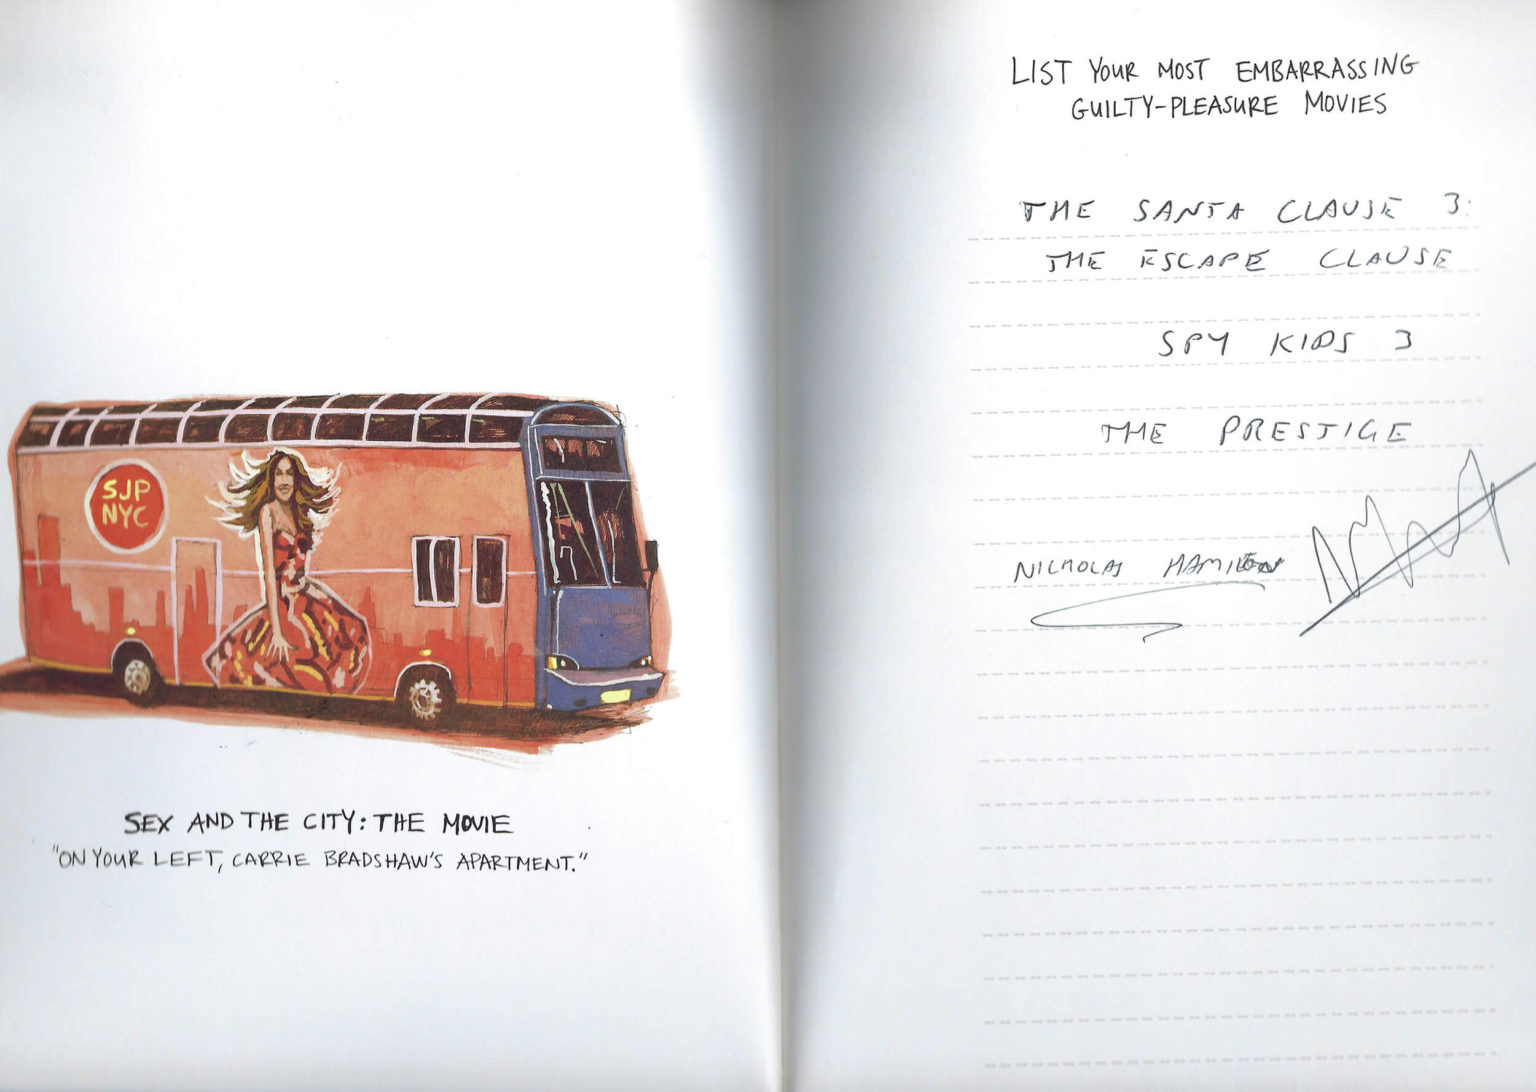 SJP
NYC
SEX AND THE CITY: THE MOVIE
"ON YOUR LEFT, CARRIE BRADSHAW'S APARTMENT."
LIST YOUR MOST EMBARRASSING
GUILTY-PLEASURE MOVIES
THE SANTA CLAUSE 3:
THE ESCAPE CLAUSE
SPY KIDS 3
THE PRESTIGE
NICHOLAS HAMILTON